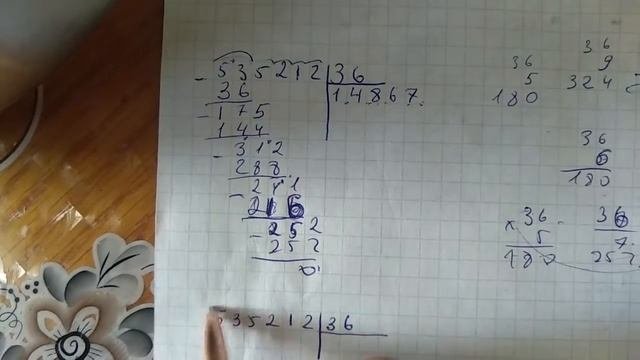 - 535212 | 36
36 | 14867
- 175
144
- 312
288
- 241
216
- 252
252
0
36
5
180
36
9
324
36
6
180
× 36
5
180
36
7
252
535212 | 36